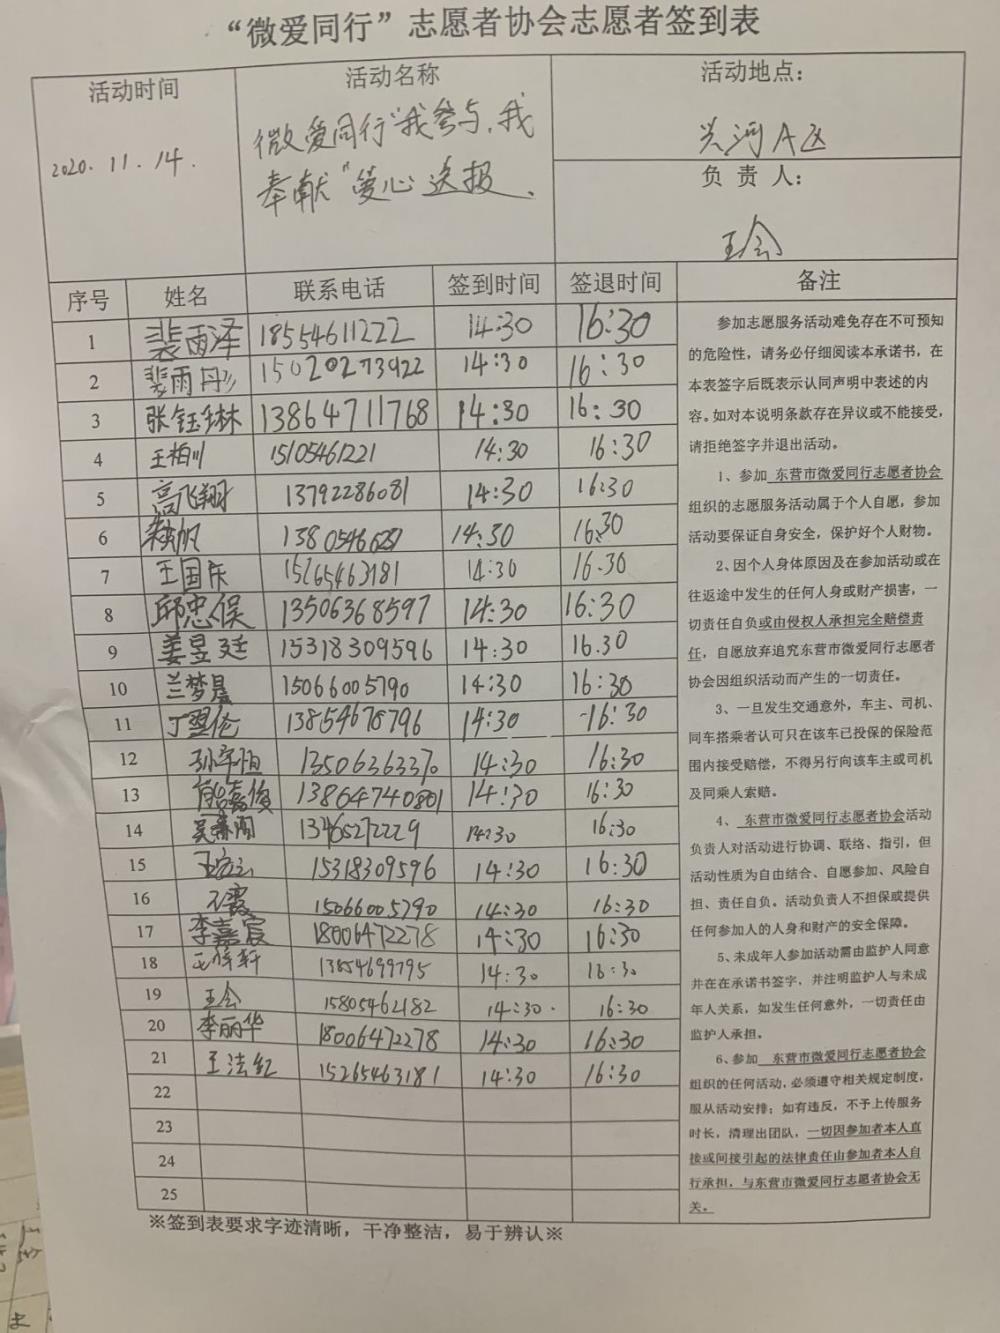 “微爱同行”志愿者协会志愿者签到表
活动时间
2020. 11. 14.
活动名称
微爱同行“我参与,我
奉献”爱心送报.
活动地点：
兴河A区
负 责 人：
王会
序号 姓名 联系电话 签到时间 签退时间 备注
1 裴雨泽 18554611222 14:30 16:30
2 裴雨彤 15020273922 14:30 16:30
3 张钰琳 13864711768 14:30 16:30
4 王柏川 15105461221 14:30 16:30
5 高飞翔 13792286081 14:30 16:30
6 14:30 16.30
7 王国 15265463181 14:30 16.30
8 邱忠俣 13506368597 14:30 16:30
9 姜昱廷 15318309596 14:30 16.30
10 兰梦晨 15066005790 14:30 16:30
11 丁 伦 13854678796 14:30 -16:30
12 孙宇恒 13506363370 14:30 16:30
13 嘉俊 13864740801 14:30 16:30
14 吴 13465272229 14:30 16:30
15 王 15318309596 14:30 16:30
16 霞 15066005790 14:30 16:30
17 李嘉宸 18006472278 14:30 16:30
18 王梓轩 13854699795 14:30 16:30
19 王会 15805462182 14:30. 16:30
20 李丽华 18006472278 14:30 16:30
21 王法红 15265463181 14:30 16:30
22
23
24
25
参加志愿服务活动难免存在不可预知
的危险性，请务必仔细阅读本承诺书，在
本表签字后既表示认同声明中表述的内
容。如对本说明条款存在异议或不能接受，
请拒绝签字并退出活动。
1、参加 东营市微爱同行志愿者协会
组织的志愿服务活动属于个人自愿，参加
活动要保证自身安全，保护好个人财物。
2、因个人身体原因及在参加活动或在
往返途中发生的任何人身或财产损害，一
切责任自负或由侵权人承担完全赔偿责
任，自愿放弃追究东营市微爱同行志愿者
协会因组织活动而产生的一切责任。
3、一旦发生交通意外，车主、司机、
同车搭乘者认可只在该车已投保的保险范
围内接受赔偿，不得另行向该车主或司机
及同乘人索赔。
4、 东营市微爱同行志愿者协会活动
负责人对活动进行协调、联络、指引，但
活动性质为自由结合、自愿参加、风险自
担、责任自负。活动负责人不担保或提供
任何参加人的人身和财产的安全保障。
5、未成年人参加活动需由监护人同意
并在在承诺书签字，并注明监护人与未成
年人关系，如发生任何意外，一切责任由
监护人承担。
6、参加 东营市微爱同行志愿者协会
组织的任何活动，必须遵守相关规定制度，
服从活动安排；如有违反，不予上传服务
时长，清理出团队，一切因参加者本人直
接或间接引起的法律责任由参加者本人自
行承担，与东营市微爱同行志愿者协会无
关。
※签到表要求字迹清晰，干净整洁，易于辨认※